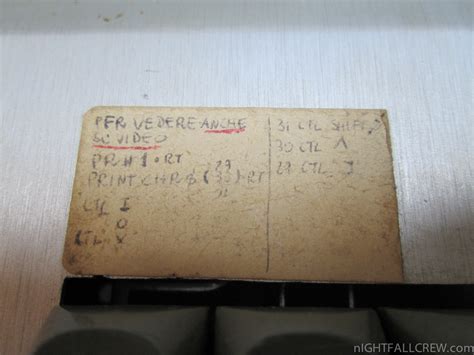 PER VEDERE ANCHE
SU VIDEO
PR # 1 · RT
29
PRINT CHR$ (30) · RT
CTL I
O
CTL X
31 CTL SHIFT
30 CTL Λ
29 CTL
nIGHTFALLCREW.com